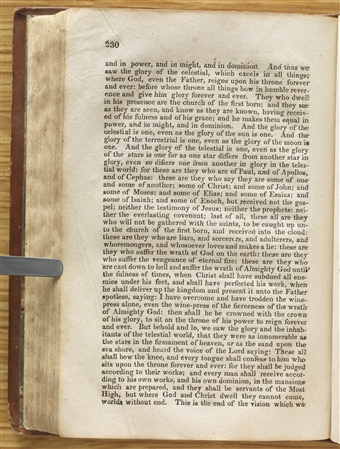 230
and in power, and in might, and in dominion. And thus we
saw the glory of the celestial, which excels in all things;
where God, even the Father, reigns upon his throne forever
and ever: before whose throne all things bow in humble rever-
ence and give him glory forever and ever. They who dwell
in his presence are the church of the first born: and they see
as they are seen, and know as they are known, having receiv-
ed of his fulness and of his grace; and he makes them equal in
power, and in might, and in dominion. And the glory of the
celestial is one, even as the glory of the sun is one. And the
glory of the terrestrial is one, even as the glory of the moon is
one. And the glory of the telestial is one, even as the glory
of the stars is one for as one star differs from another star in
glory, even so differs one from another in glory in the teles-
tial world: for these are they who are of Paul, and of Apollos,
and of Cephas: these are they who say they are some of one
and some of another; some of Christ; and some of John; and
some of Moses; and some of Elias; and some of Esaias; and
some of Isaiah; and some of Enoch, but received not the gos-
pel; neither the testimony of Jesus; neither the prophets: nei-
ther the everlasting covenant; last of all, these all are they
who will not be gathered with the saints, to be caught up un-
to the church of the first born, and received into the cloud:
these are they who are liars, and sorcerers, and adulterers, and
whoremongers, and whosoever loves and makes a lie: these are
they who suffer the wrath of God on the earth: these are they
who suffer the vengeance of eternal fire: these are they who
are cast down to hell and suffer the wrath of Almighty God until
the fulness of times, when Christ shall have subdued all ene-
mies under his feet, and shall have perfected his work, when
he shall deliver up the kingdom and present it unto the Father
spotless, saying: I have overcome and have trodden the wine-
press alone, even the wine-press of the fierceness of the wrath
of Almighty God: then shall he be crowned with the crown
of his glory, to sit on the throne of his power to reign forever
and ever. But behold and lo, we saw the glory and the inhab-
itants of the telestial world, that they were as innumerable as
the stars in the firmament of heaven, or as the sand upon the
sea shore, and heard the voice of the Lord saying: These all
shall bow the knee, and every tongue shall confess to him who
sits upon the throne forever and ever: for they shall be judged
according to their works; and every man shall receive accor-
ding to his own works, and his own dominion, in the mansions
which are prepared, and they shall be servants of the Most
High, but where God and Christ dwell they cannot come,
worlds without end. This is the end of the vision which we